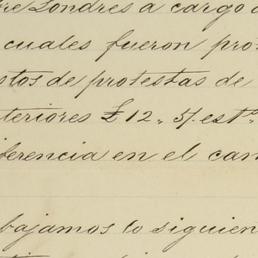 re Londres a cargo d
cuales fueron pro
stos de protestas de
teriores £12,, 5/. est.ª
ferencia en el cam
bajamos lo siguien